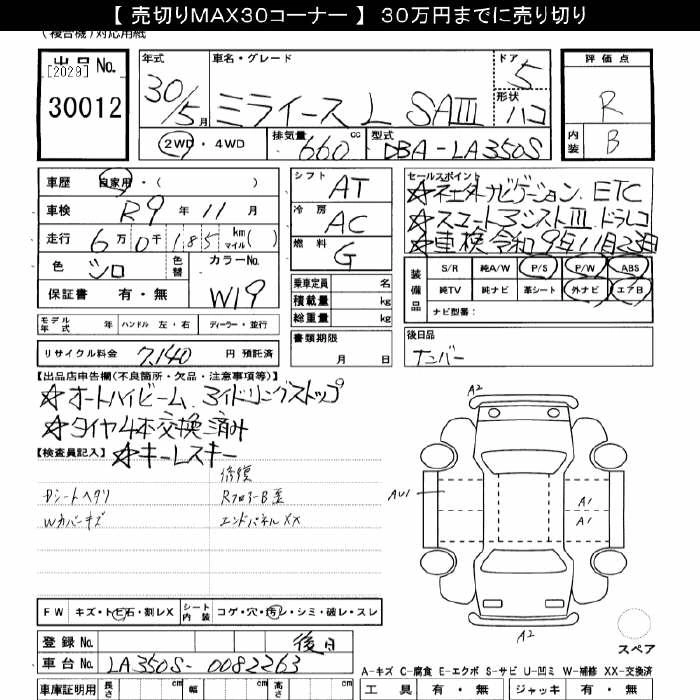 【 売切りMAX30コーナー 】 30万円までに売り切り
(複合機)対応用紙
出品 No. [2029] 30012
年式 30/5月 車名・グレード ミライース L SAⅢ ドア 5 形状 ハコ
評価点 R 内装 B
2WD ・ 4WD 排気量 660 cc 型式 DBA-LA350S
車歴 自家用・( )
車検 R9 年 11 月
走行 6万0千185 km マイル( )
色 シロ 色替 カラーNo. W19
保証書 有・無
シフト AT
冷房 AC
燃料 G
乗車定員 名
積載量 kg
総重量 kg
書類期限 月 日
セールスポイント
☆ナビゲーション ETC
☆スマートアシストⅢ ドラレコ
☆車検令和9年11月23日
装備品 S/R 純A/W P/S P/W ABS
純TV 純ナビ 革シート 外ナビ エアB
ナビ型番:
後日品
ナンバー
モデル年式 年 ハンドル 左・右 ディーラー・並行
リサイクル料金 7,140 円 預託済
【出品店申告欄(不良箇所・欠品・注意事項等)】
☆オートハイビーム アイドリングストップ
☆タイヤ4本交換済み
【検査員記入】 ☆キーレスキー
修復
Dシートヘタリ Rフロアー歪
Wカバーキズ エンドパネルXX
A2
AU1
A1
A1
A2
スペア
FW キズ・トビ石・割レX シート内装 コゲ・穴・汚レ・シミ・破レ・スレ
登録 No. 後日
車台 No. LA350S-0082263
車庫証明用 長さ cm 幅 cm 高さ cm
A-キズ C-腐食 E-エクボ S-サビ U-凹ミ W-補修 XX-交換済
工具 有・無 ジャッキ 有・無